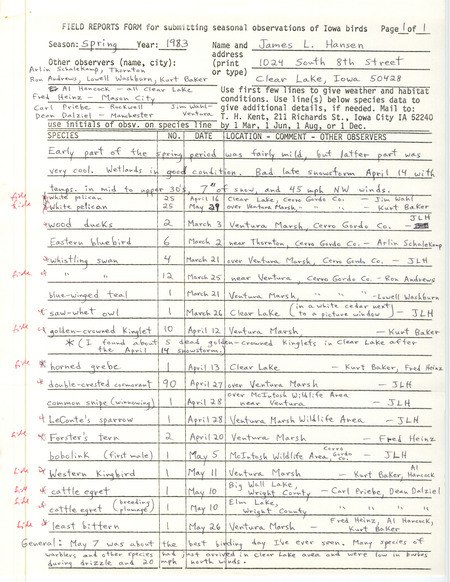 FIELD REPORTS FORM for submitting seasonal observations of Iowa birds Page 1 of 1
Season: Spring Year: 1983 Name and address (print or type) James L. Hansen
1024 South 8th Street
Clear Lake, Iowa 50428
Other observers (name, city):
Arlin Schalekamp, Thornton
Ron Andrews, Lowell Washburn, Kurt Baker
& Al Hancock - all Clear Lake
Fred Heinz - Mason City
Carl Priebe - Rockwell Jim Wahl - Ventura
Dean Dalziel - Manchester
use initials of obsv. on species line
Use first few lines to give weather and habitat
conditions. Use line(s) below species data to
give additional details, if needed. Mail to:
T. H. Kent, 211 Richards St., Iowa City IA 52240
by 1 Mar, 1 Jun, 1 Aug, or 1 Dec.
SPECIES NO. DATE LOCATION - COMMENT - OTHER OBSERVERS
Early part of the spring period was fairly mild, but latter part was
very cool. Wetlands in good condition. Bad late snowstorm April 14 with
temps. in mid to upper 30's, 7" of snow, and 45 mph NW winds.
* white pelican 25 April 16 Clear Lake, Cerro Gordo Co. - Jim Wahl
* white pelican 25 May 29 over Ventura Marsh - " " - Kurt Baker
* wood ducks 2 March 3 Ventura Marsh, Cerro Gordo Co. - JLH
Eastern bluebird 6 March 2 near Thornton, Cerro Gordo Co. - Arlin Schalekamp
* whistling swan 4 March 21 over Ventura Marsh, Cerro Gordo Co. - JLH
* " " 12 March 25 near Ventura, Cerro Gordo Co. - Ron Andrews
blue-winged teal 1 March 21 Ventura Marsh, " " " - Lowell Washburn
* saw-whet owl 1 March 26 Clear Lake (in a white cedar next to a picture window) - JLH
* golden-crowned Kinglet 10 April 12 Ventura Marsh - Kurt Baker
* (I found about 5 dead golden-crowned Kinglets in Clear Lake after
the April 14 snowstorm.)
* horned grebe 1 April 13 Clear Lake - Kurt Baker, Fred Heinz
* double-crested cormorant 90 April 27 over Ventura Marsh - JLH
common snipe (winnowing) 1 April 28 over McIntosh Wildlife Area near Ventura - JLH
* LeConte's sparrow 1 April 28 Ventura Marsh Wildlife Area - JLH
* Forster's tern 2 April 20 Ventura Marsh - Fred Heinz
bobolink (first male) 1 May 5 McIntosh Wildlife Area, Cerro Gordo Co. - JLH
* Western Kingbird 1 May 11 Ventura Marsh - Kurt Baker, Al Hancock
* cattle egret 1 May 10 Big Wall Lake, Wright County - Carl Priebe, Dean Dalziel
* cattle egret (breeding plumage) 1 May 10 Elm Lake, Wright County " " " "
* least bittern 1 May 26 Ventura Marsh - Fred Heinz, Al Hancock, Kurt Baker
General: May 7 was about the best birding day I've ever seen. Many species of
warblers and other species had just arrived in Clear Lake area and were low in bushes
during drizzle and 20 mph north winds.